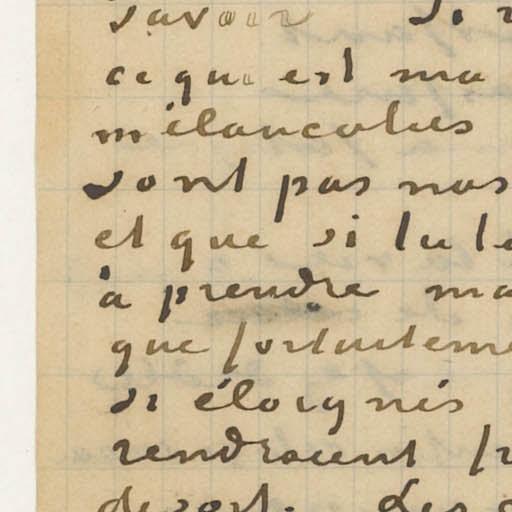 savoir Si
ce qui est ma
mélancolies
sont pas nos
et que si tu te
à prendre ma
que fortuiteme
si éloignés
rendraient fr
Les